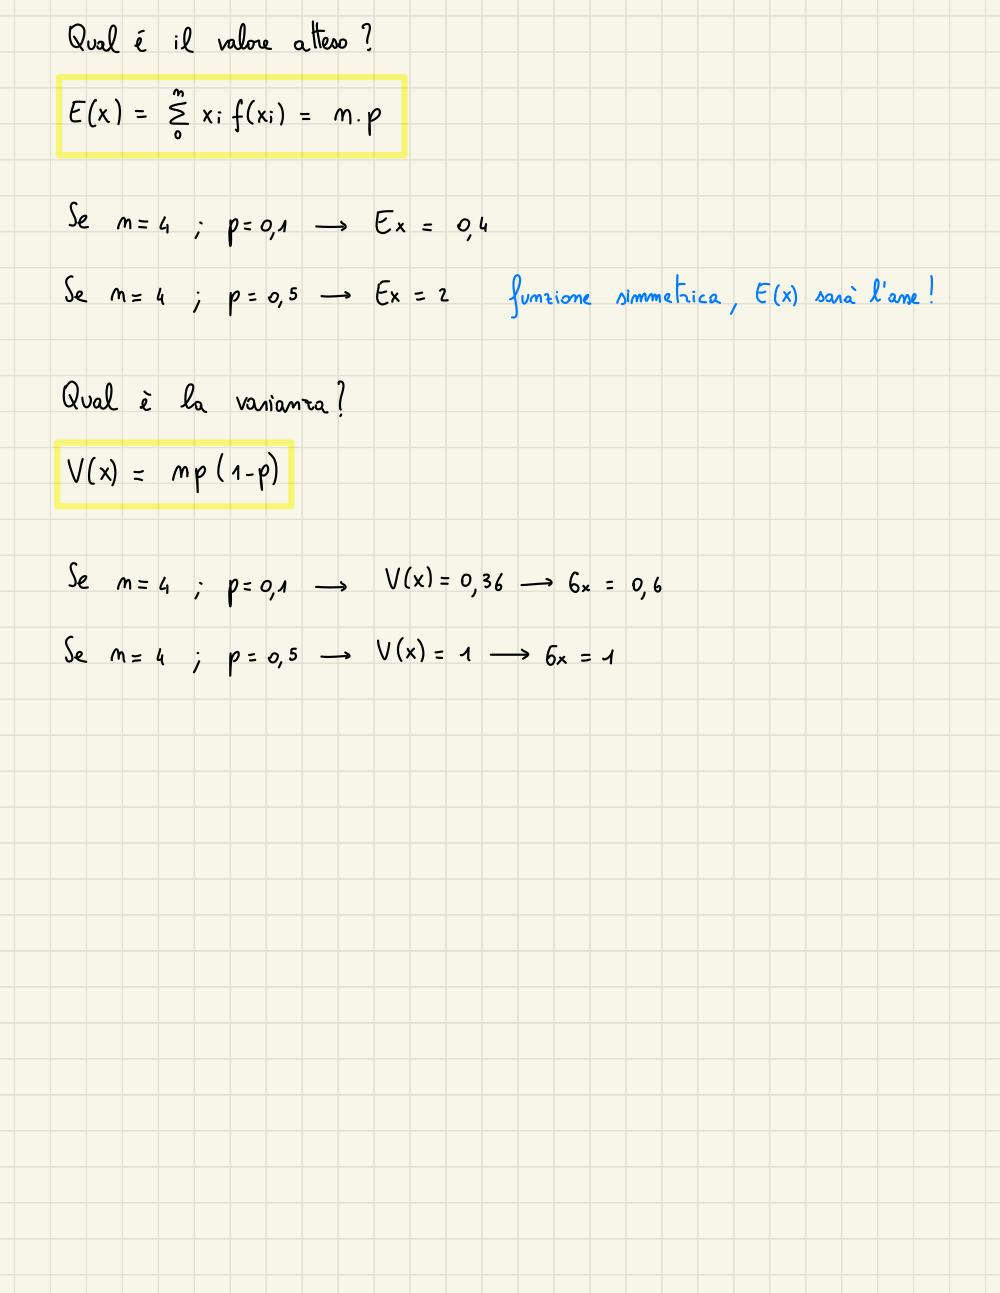 Qual é il valore atteso ?
E(x) = n Σ 0 xi f(xi) = n · p
Se n = 4 ; p = 0,1 → Ex = 0,4
Se n = 4 ; p = 0,5 → Ex = 2 funzione simmetrica, E(x) sarà l'asse !
Qual è la varianza ?
V(x) = np (1-p)
Se n = 4 ; p = 0,1 → V(x) = 0,36 → σx = 0,6
Se n = 4 ; p = 0,5 → V(x) = 1 → σx = 1